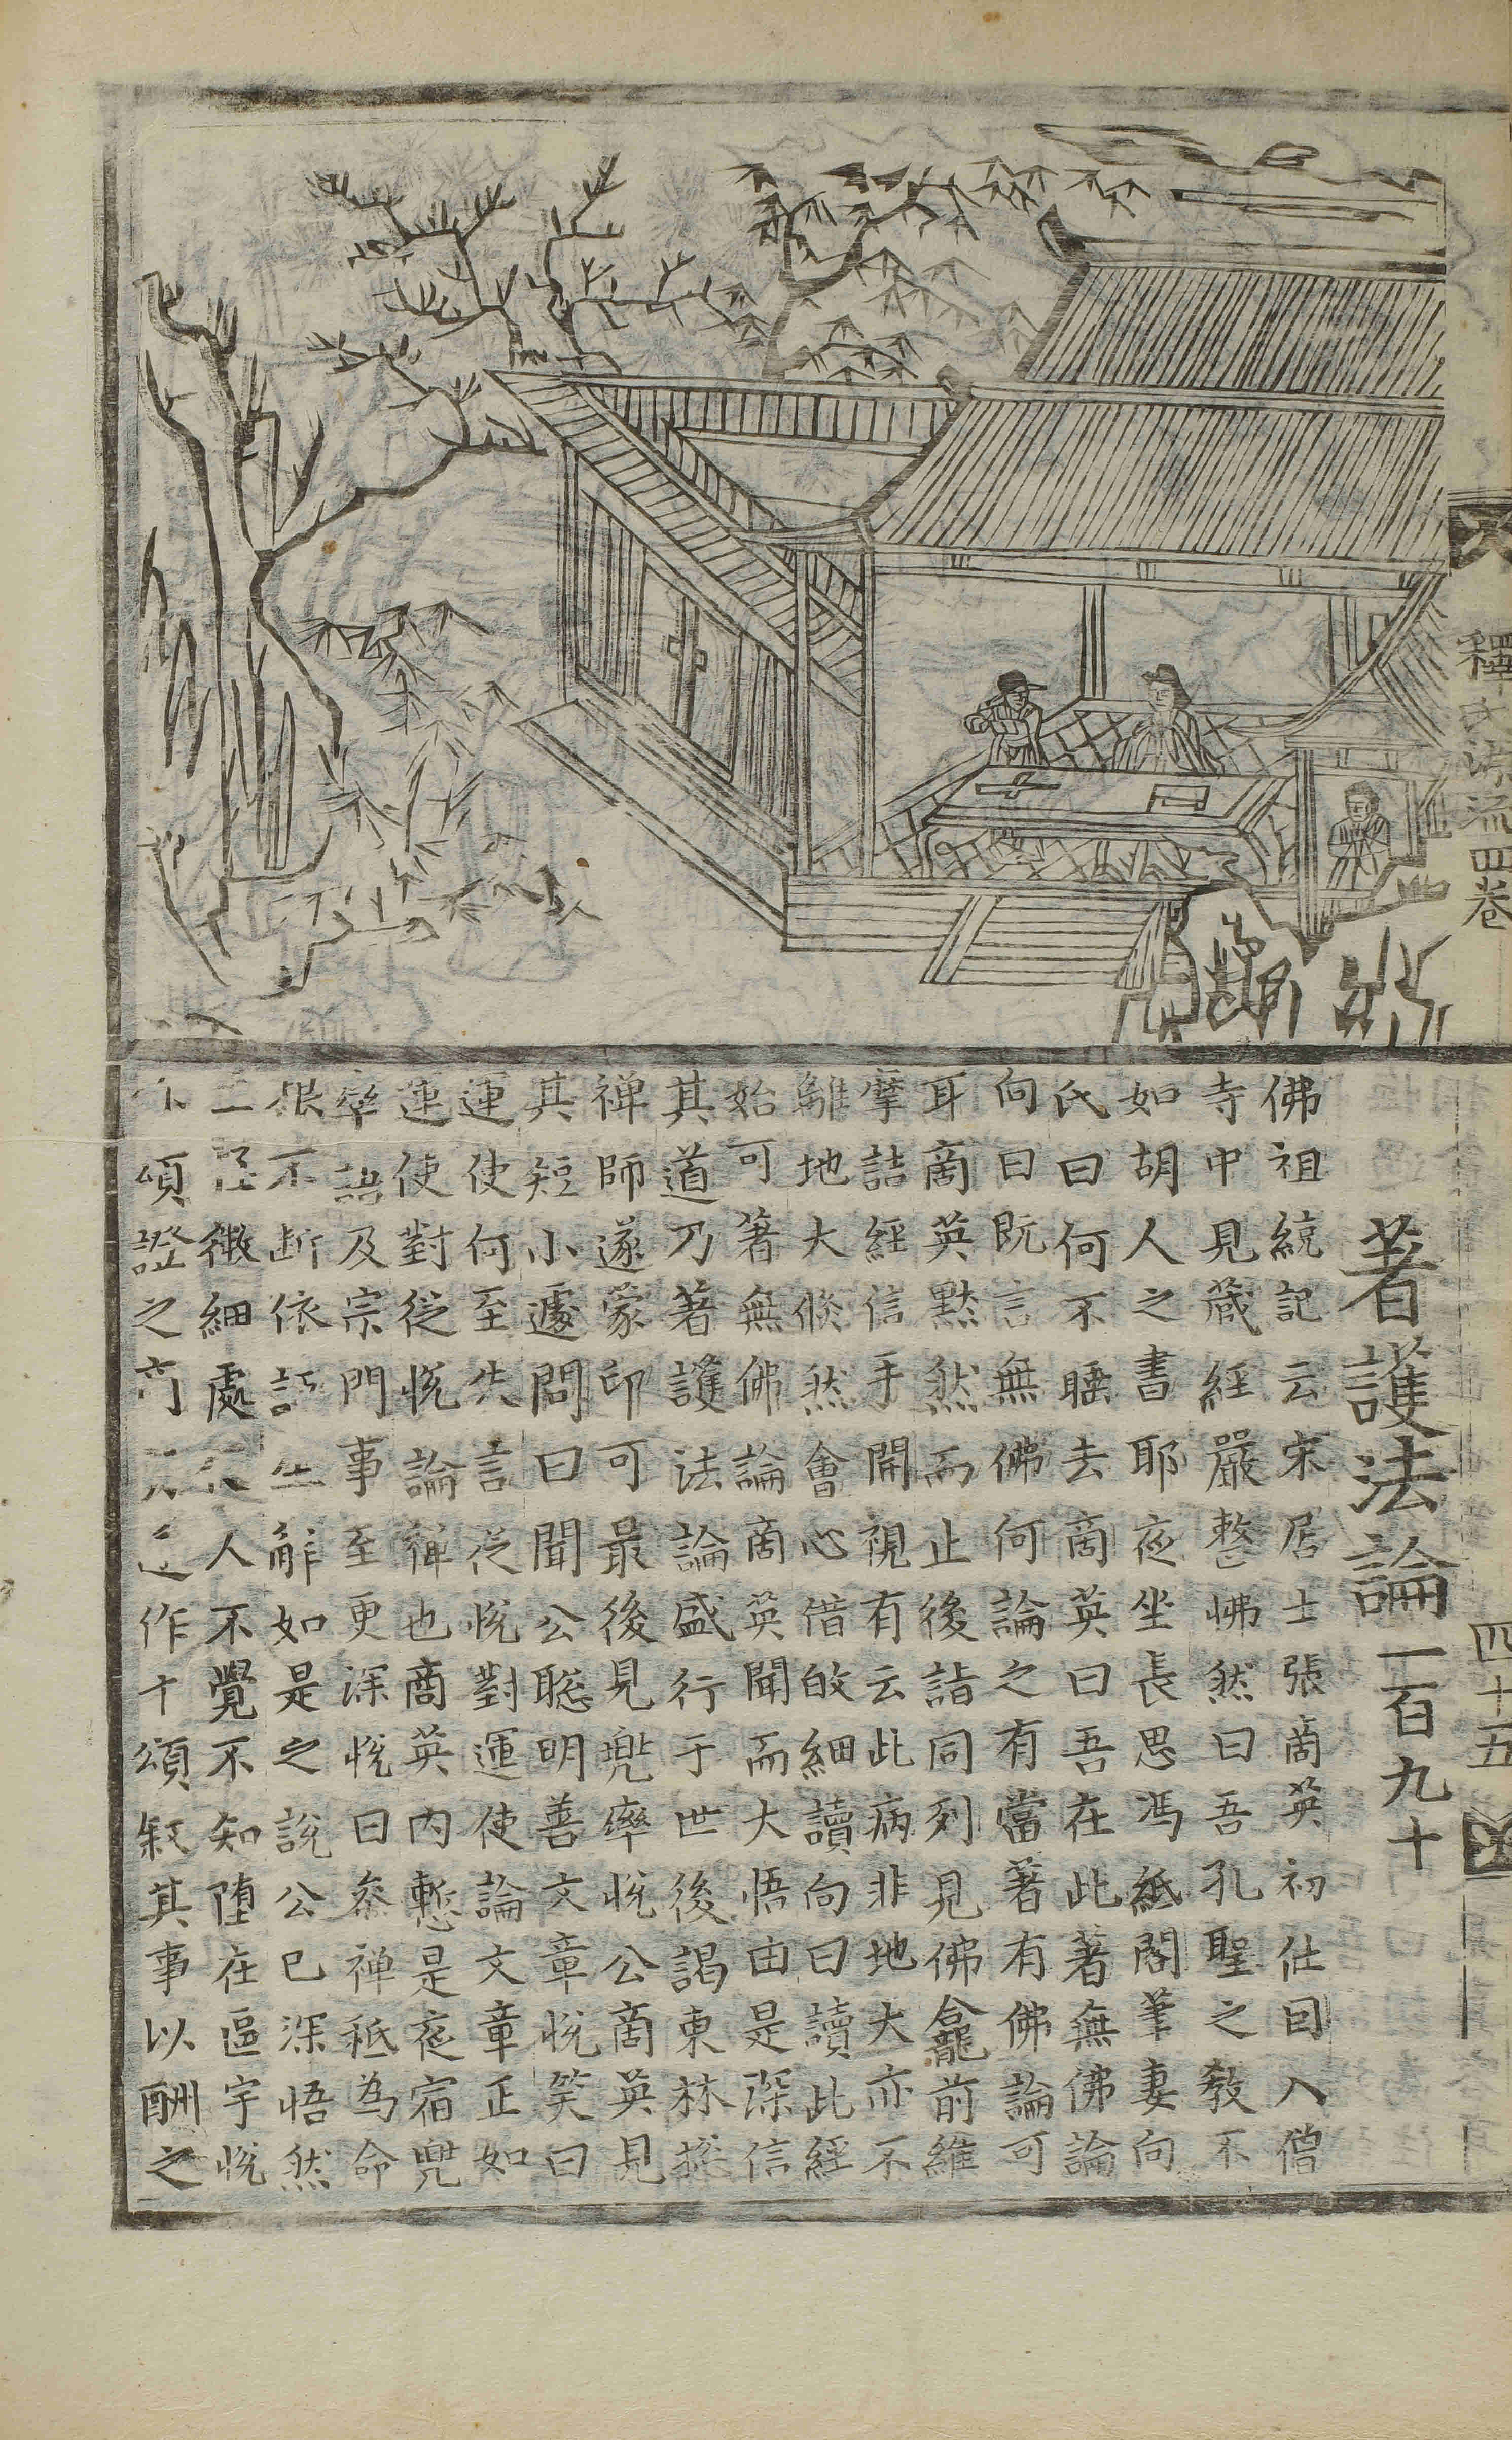 釋氏源流四卷
四十五
著護法論一百九十
佛祖統記云宋居士張商英初仕因入僧
寺中見藏經嚴整怫然曰吾孔聖之教不
如胡人之書耶夜坐長思馮紙閣筆妻向
氏曰何不睡去商英曰吾在此著無佛論
向曰既言無佛何論之有當著有佛論可
耳商英黙然而止後詣同列見佛龕前維
摩詰經信手開視有云此病非地大亦不
離地大倐然會心借啟細讀向曰讀此經
始可著無佛論商英聞而大悟由是深信
其道乃著護法論盛行于世後謁東林揔
禅師遂蒙印可最後見兠率恱公商英見
其短小遽問曰聞公聡明善文章恱笑曰
運使何至失言從恱對運使論文章正如
運使對從恱論禅也商英内慙是夜宿兠
率語及宗門事至更深恱曰叅禅秪為命
根不断依語生解如是之說公已深悟然
至微細處人不覺不知堕在區宇恱
頌證之商作十頌叙其事以酬之